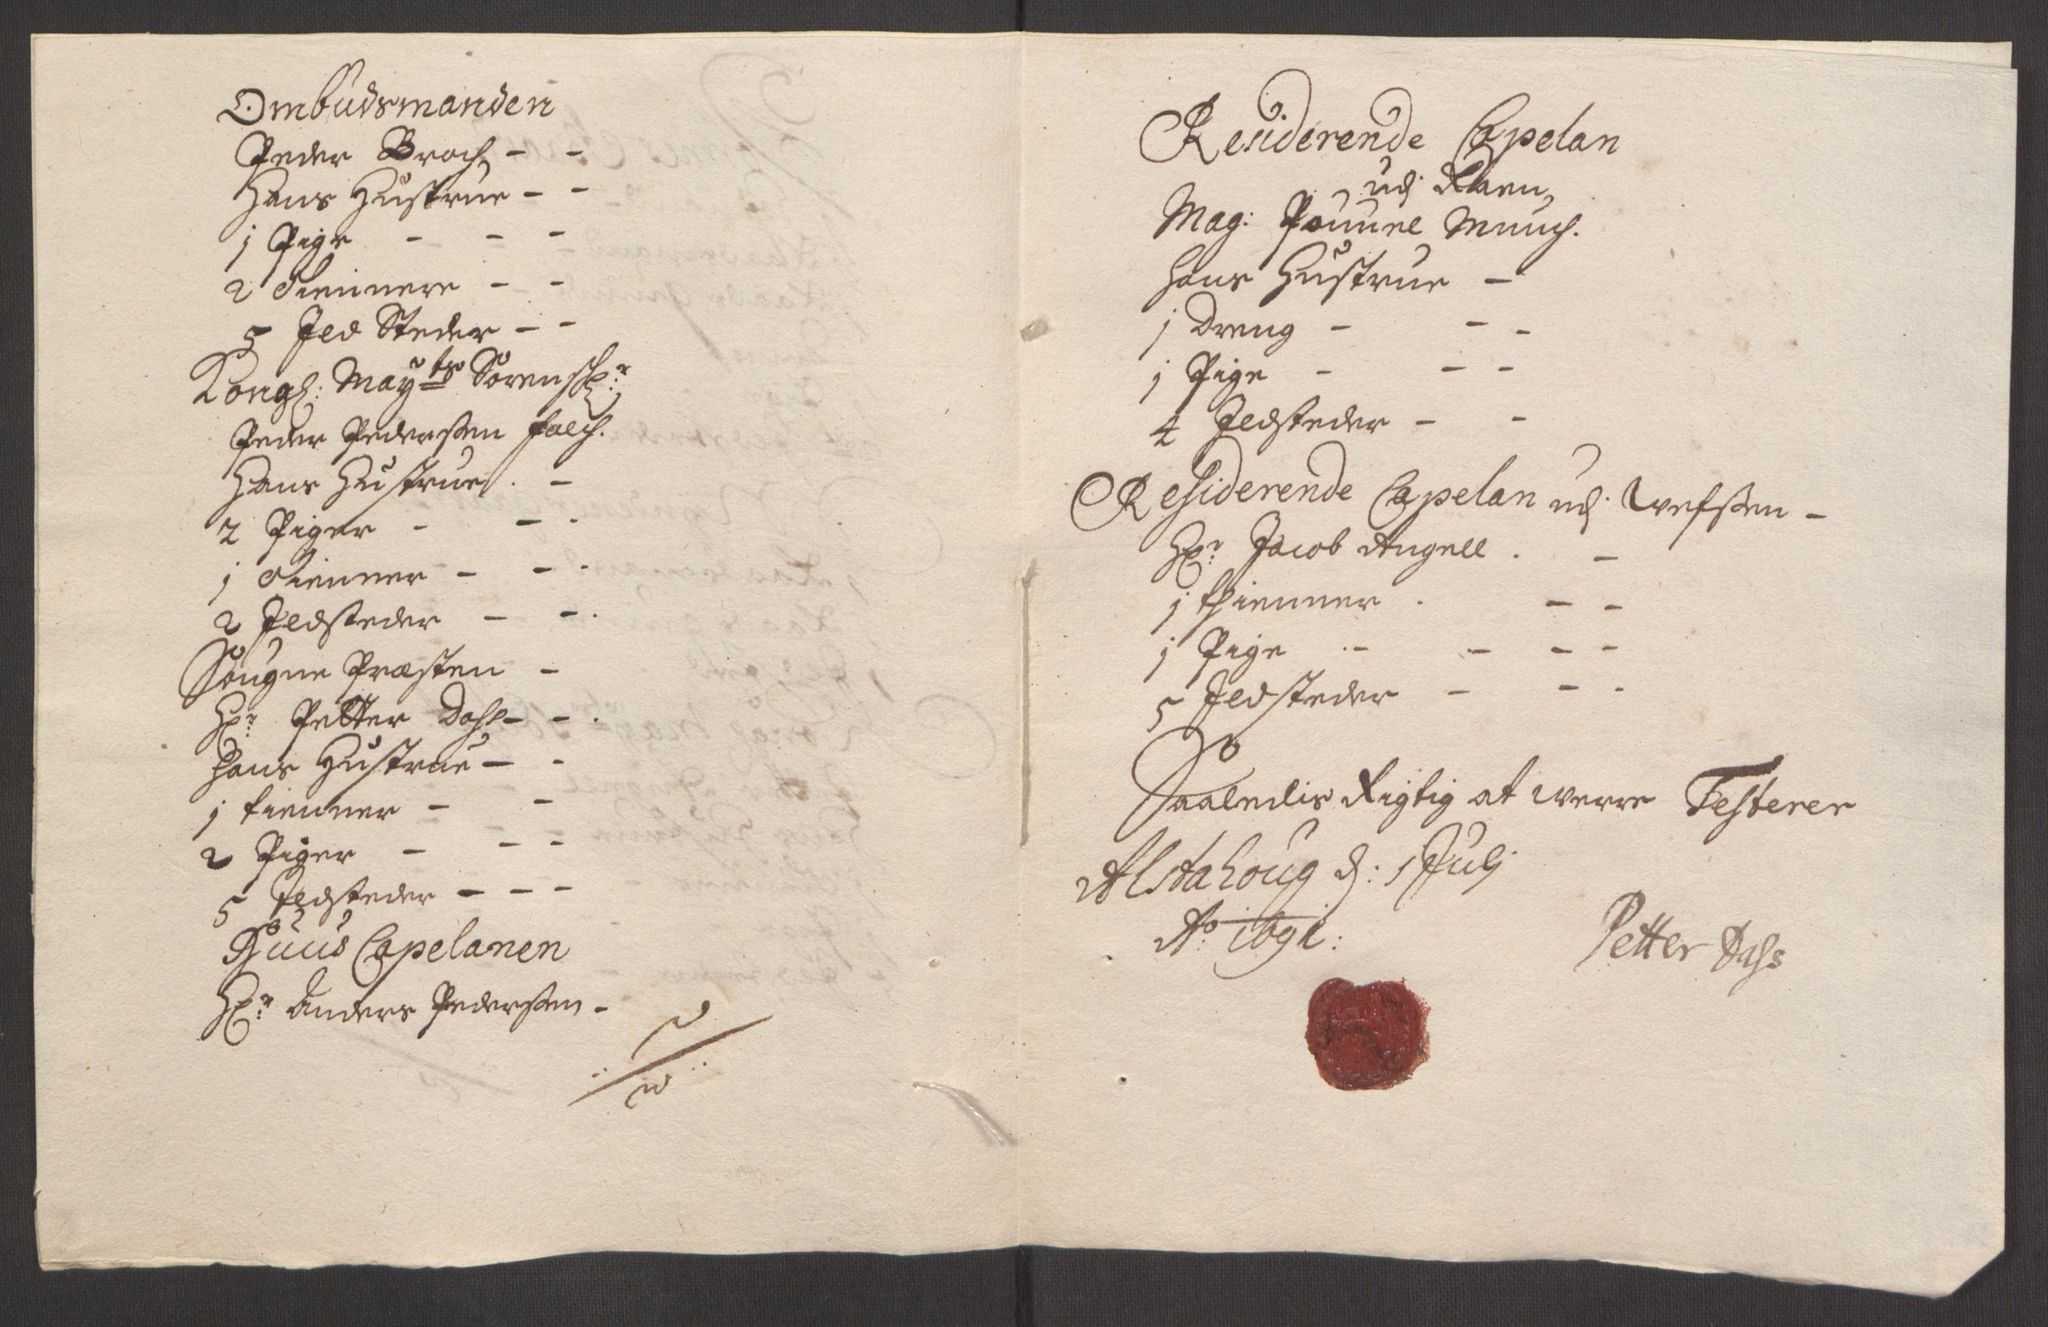 Ombudsmanden
Peder Broch - -
Hans Hustrue - -
1 Pige - - -
2 Tiennere - -
5 Ild Steder - -
Kongl: Mayts Sorenschr:
Peder Pedersen falch.
Hans Hustrue . -
2 Piger - - .
1 Tienner - - .
2 Ildsteder - - .
Sougne Præsten -
Hr Petter Dass - - .
Hans Hustrue - -
1 tienner - -
2 Piger - - -
5 Ildsteder - - -
Huus Capelanen
Hr: Anders Pedersen -
Residerende Capelan
udj Raen,
Mag: Pouuel Munch.
Hans Hustrue -
1 Dreng - - -
1 Pige - - -
4 Ildsteder - -
Residerende Capelan udj Wefssen -
Hr Jacob Angell . -
1 thienner . - -
1 Pige . - - - -
5 Ildsteder - - -
Saaledis Rigtig at werre Testerer
Alstahoug d: 1 Julj
Ao 1691:
Petter Dass